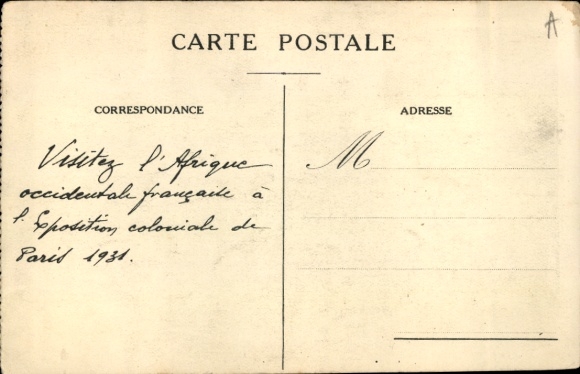 A
CARTE POSTALE
CORRESPONDANCE
ADRESSE
Visitez l'Afrique
occidentale française à
l'Exposition coloniale de
Paris 1931.
M